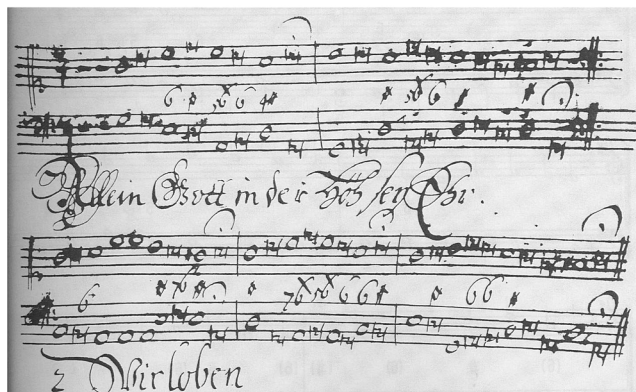 Allein Gott in der Höh sey Ehr.
2 Wir loben